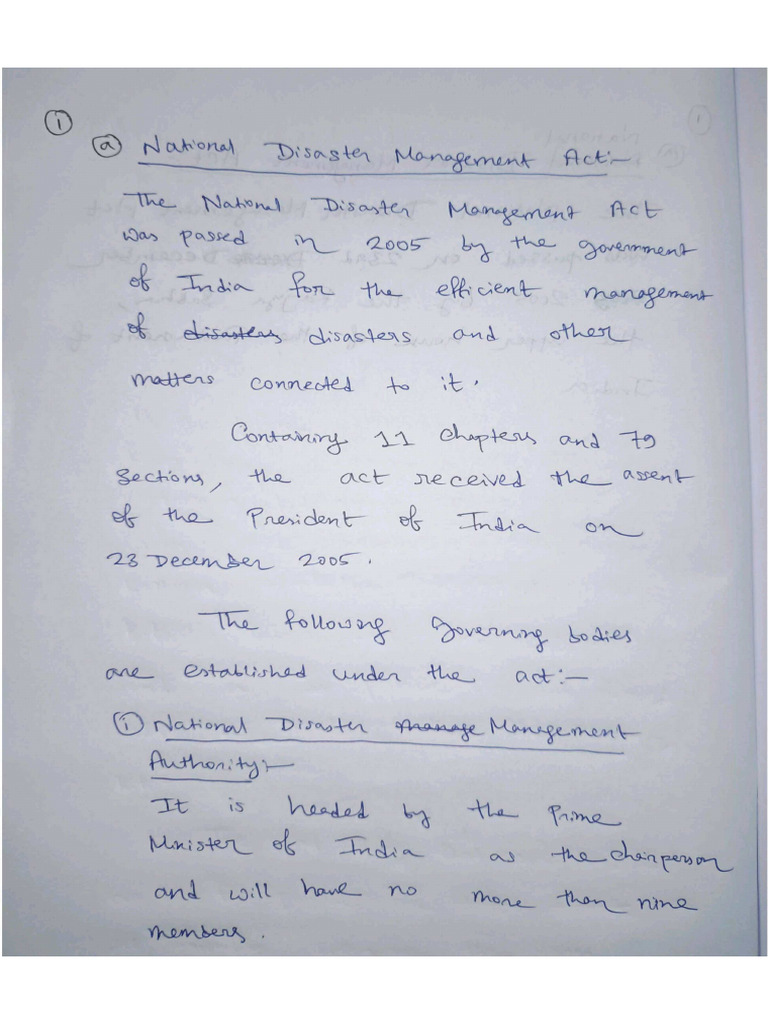 1
a National Disaster Management Act:-
The National Disaster Management Act
was passed in 2005 by the government
of India for the efficient management
of disasters disasters and other
matters connected to it.
Containing 11 chapters and 79
sections, the act received the assent
of the President of India on
23 December 2005.
The following governing bodies
are established under the act:-
i National Disaster manage Management
Authority:-
It is headed by the Prime
Minister of India as the chairperson
and will have no more than nine
members.